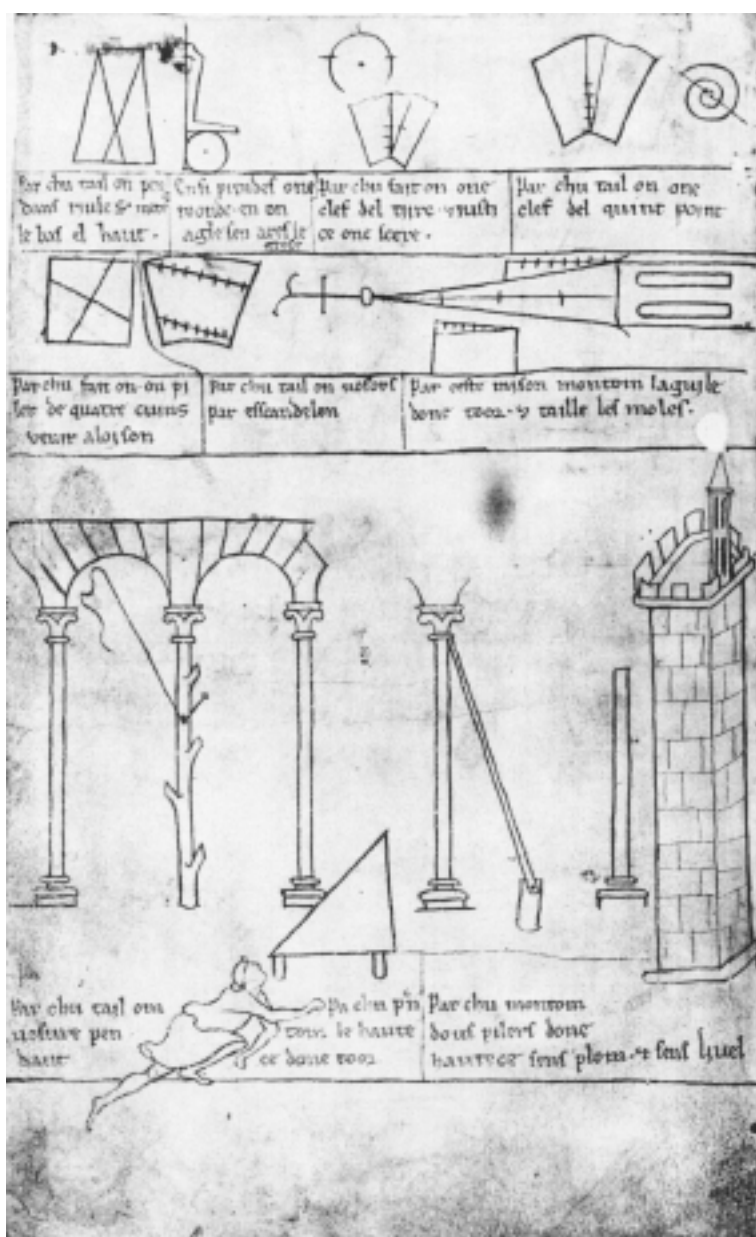 Par chu tail on pen
dans riule
le bas el haut.
Ensi prendes one
roonde en on
agle sen ares le
grosse
Par chu fait on one
clef del tirc
ce one scere.
Par chu tail on one
clef del quint point
Par chu fait on on pi
ler de quatre cuins
venir a loison
Par chu tail on vosors
par esscandelon
Par ceste raison montom laguile
done toor & taille les moles.
Par chu tail om
vosure pen
dant
Pa chu prn
tom le haute
ce done toor
Par chu montom
dous pilers done
hautece sens plom & sens livel